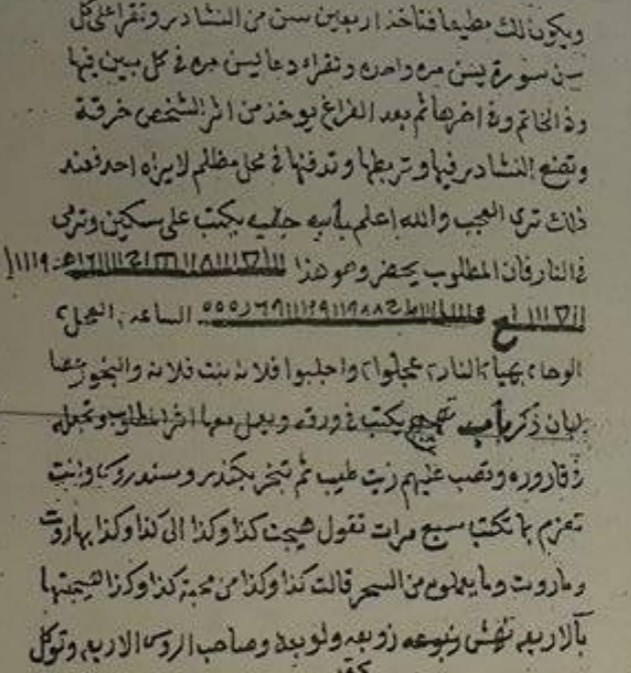 ويكون لك مطيعا فتأخذ اربعين سن من النشادر وتقرا على كل
سن سورة يس مره واحده وتقراء دعا يس مره في كل مبين فيها
وذ الخاتم وفي اخرها ثم بعد الفراغ يوخذ من اثر الشخص خرقة
وتضع النشادر فيها وتربطها وتدفنها في محل مظلم لا يراه احد فعند
ذلك ترى العجب والله اعلم باب جلب يكتب على سكين وترمى
في النار فان المطلوب يحضر وهو هذا
الساعه العجل ٢
الوحا ٢ بهيا النار ٢ عجلوا ٢ واجلبوا فلانه بنت فلانه والبخور
لبان ذكر باب تهيج يكتب في ورقه ويعمل معها اثر المطلوب وتجعله
في قاروره وتصب عليهم زيت طيب ثم تبخر بكندر وسندروس وانت
تعزم بما تكتب سبع مرات تقول هيجت كذا وكذا الى كذا وكذا بهاروت
وماروت وما يعلمون من السحر قالت كذا وكذا من محبة كذا وكذا هيجتها
بالاربعه زوبعه ولوبعه وصاحب الروس الاربعه وتوكل